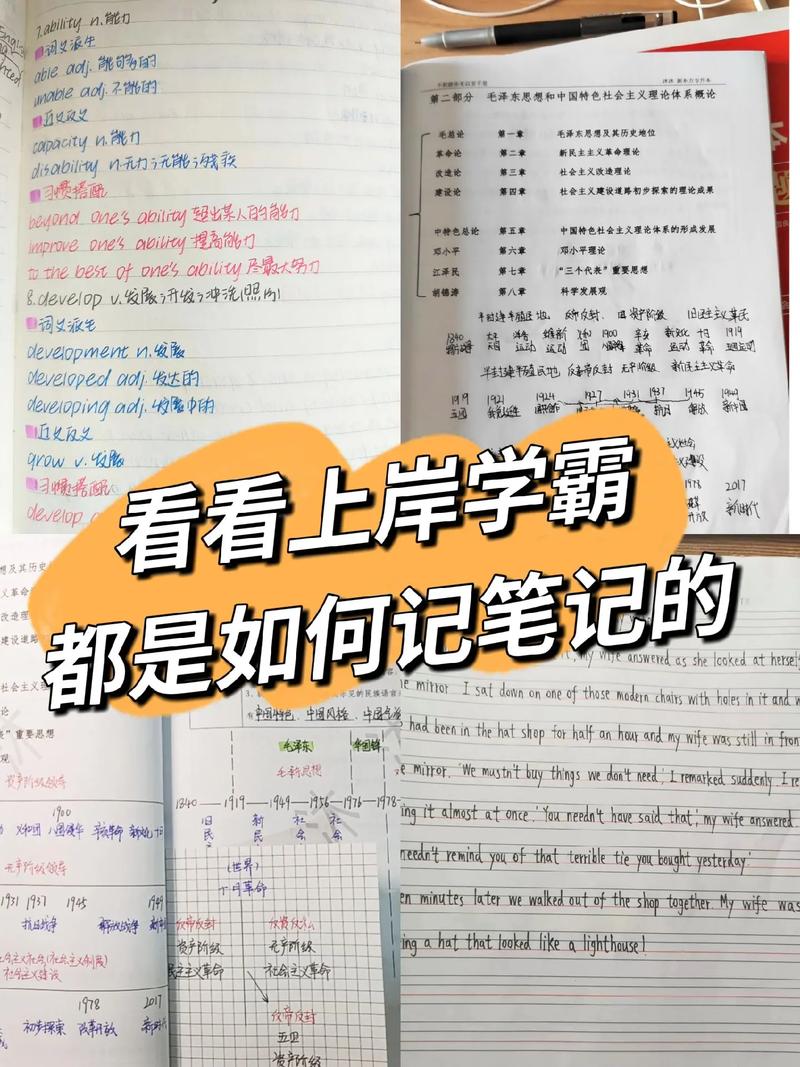 7. ability n. 能力
词义派生
able adj. 能够的
unable adj. 不能的
近义反义
capacity n. 能力
disability n. 无力；无能；残疾
习惯搭配
beyond one's ability 超出某人的能力
improve one's ability 提高能力
to the best of one's ability 尽最大努力
8. develop v. 发展；开发；冲洗(照片)
词义派生
development n. 发展
developed adj. 发达的
developing adj. 发展中的
近义反义
grow v. 发展
习惯搭配
develop
第二部分 毛泽东思想和中国特色社会主义理论体系概论
毛总论 第一章 毛泽东思想及其历史地位
革命论 第二章 新民主主义革命理论
改造论 第三章 社会主义改造理论
建设论 第四章 社会主义建设道路初步探索的理论成果
中特色总论 第五章 中国特色社会主义理论体系的形成发展
邓小平 第六章 邓小平理论
江泽民 第七章 “三个代表”重要思想
胡锦涛 第八章 科学发展观
半封建半殖民地 反帝反封 旧资产阶级 旧民主主义革命
1840 1900 辛亥 新文化 十月 1919
运动 运动 革命 运动 革命 五四运动
半封建半殖民地 反帝反封 无产阶级 新民主主义革命
1919 1921 1924 1927 1931 1937 1945 1949
五四 新中国
1978 2017
新时代
看看上岸学霸
都是如何记笔记的
想及其历史
义革命
改造理论
建设道路
社会主义
论
表”重要思想
观
资产阶级领导
1900
义和团 八国联军 辛亥革命 新文化 十月
无产阶级领导
1931 1937 1945 1949
抗日战争 解放战争
社会主义建设
1978 2017
初步探索 改革开放 新时代
的民族语言
中国特色、中国风格、中国气派
毛泽东 华国锋
毛泽东思想
1840 1919 1949 1956 1976 1978
旧 新 社 社
民 民 会 会
(世界)
十月革命
反帝反封 反资反私
资产阶级 无产阶级
民主主义革命 社会主义革命
反帝反封
五四
资产阶级
my wife answered as she looked at herself
mirror. I sat down on one of those modern chairs with holes in it and w
had been in the hat shop for half an hour and my wife was still in fron
mirror. 'We mustn't buy things we don't need,' I remarked suddenly. I re
ing it almost at once. 'You needn't have said that,' my wife answered.
needn't remind you of that terrible tie you bought yesterday.'
en minutes later we walked out of the shop together. My wife was
ing a hat that looked like a lighthouse!